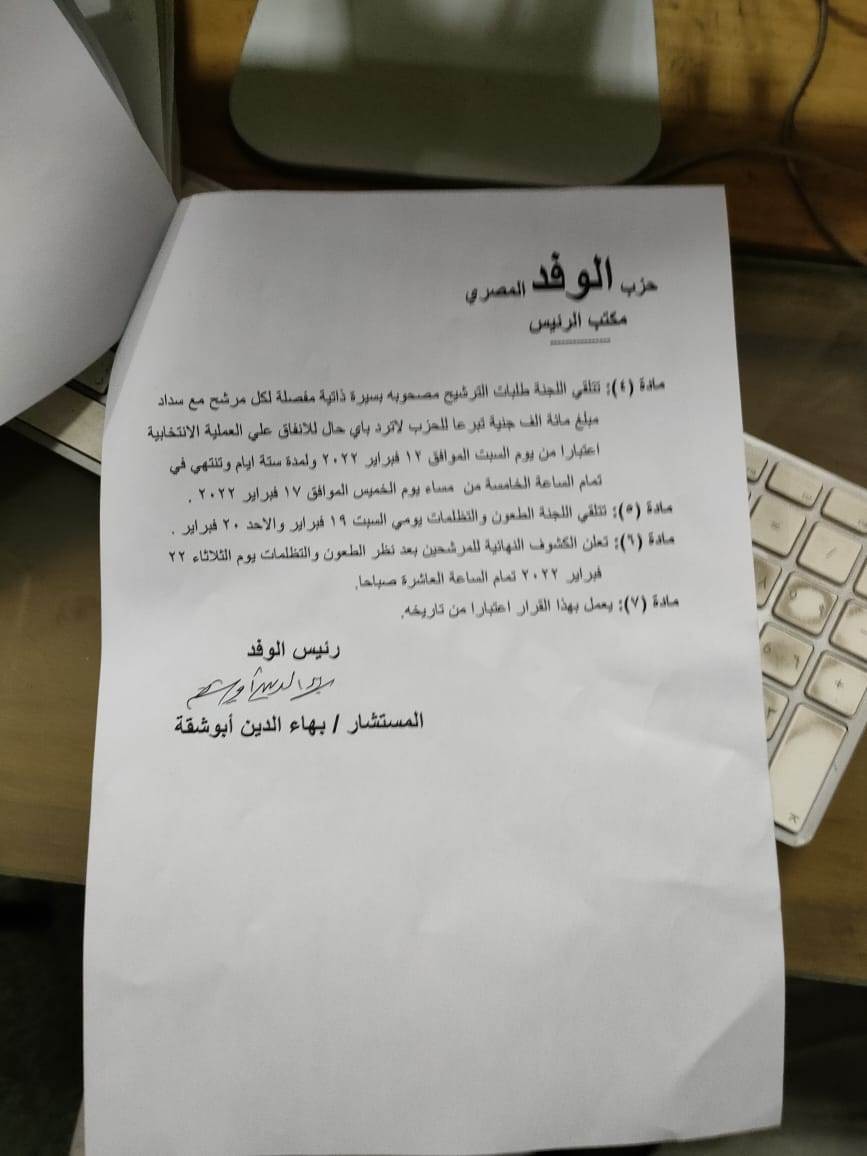 حزب الوفد المصري
مكتب الرئيس
مادة (٤): تتلقي اللجنة طلبات الترشيح مصحوبه بسيرة ذاتية مفصلة لكل مرشح مع سداد
مبلغ مائة الف جنية تبرعا للحزب لاترد باي حال للانفاق علي العملية الانتخابية
اعتبارا من يوم السبت الموافق ١٢ فبراير ٢٠٢٢ ولمدة ستة ايام وتنتهي في
تمام الساعة الخامسة من مساء يوم الخميس الموافق ١٧ فبراير ٢٠٢٢ .
مادة (٥): تتلقي اللجنة الطعون والتظلمات يومي السبت ١٩ فبراير والاحد ٢٠ فبراير .
مادة (٦): تعلن الكشوف النهائية للمرشحين بعد نظر الطعون والتظلمات يوم الثلاثاء ٢٢
فبراير ٢٠٢٢ تمام الساعة العاشرة صباحا.
مادة (٧): يعمل بهذا القرار اعتبارا من تاريخه.
رئيس الوفد
المستشار / بهاء الدين أبوشقة